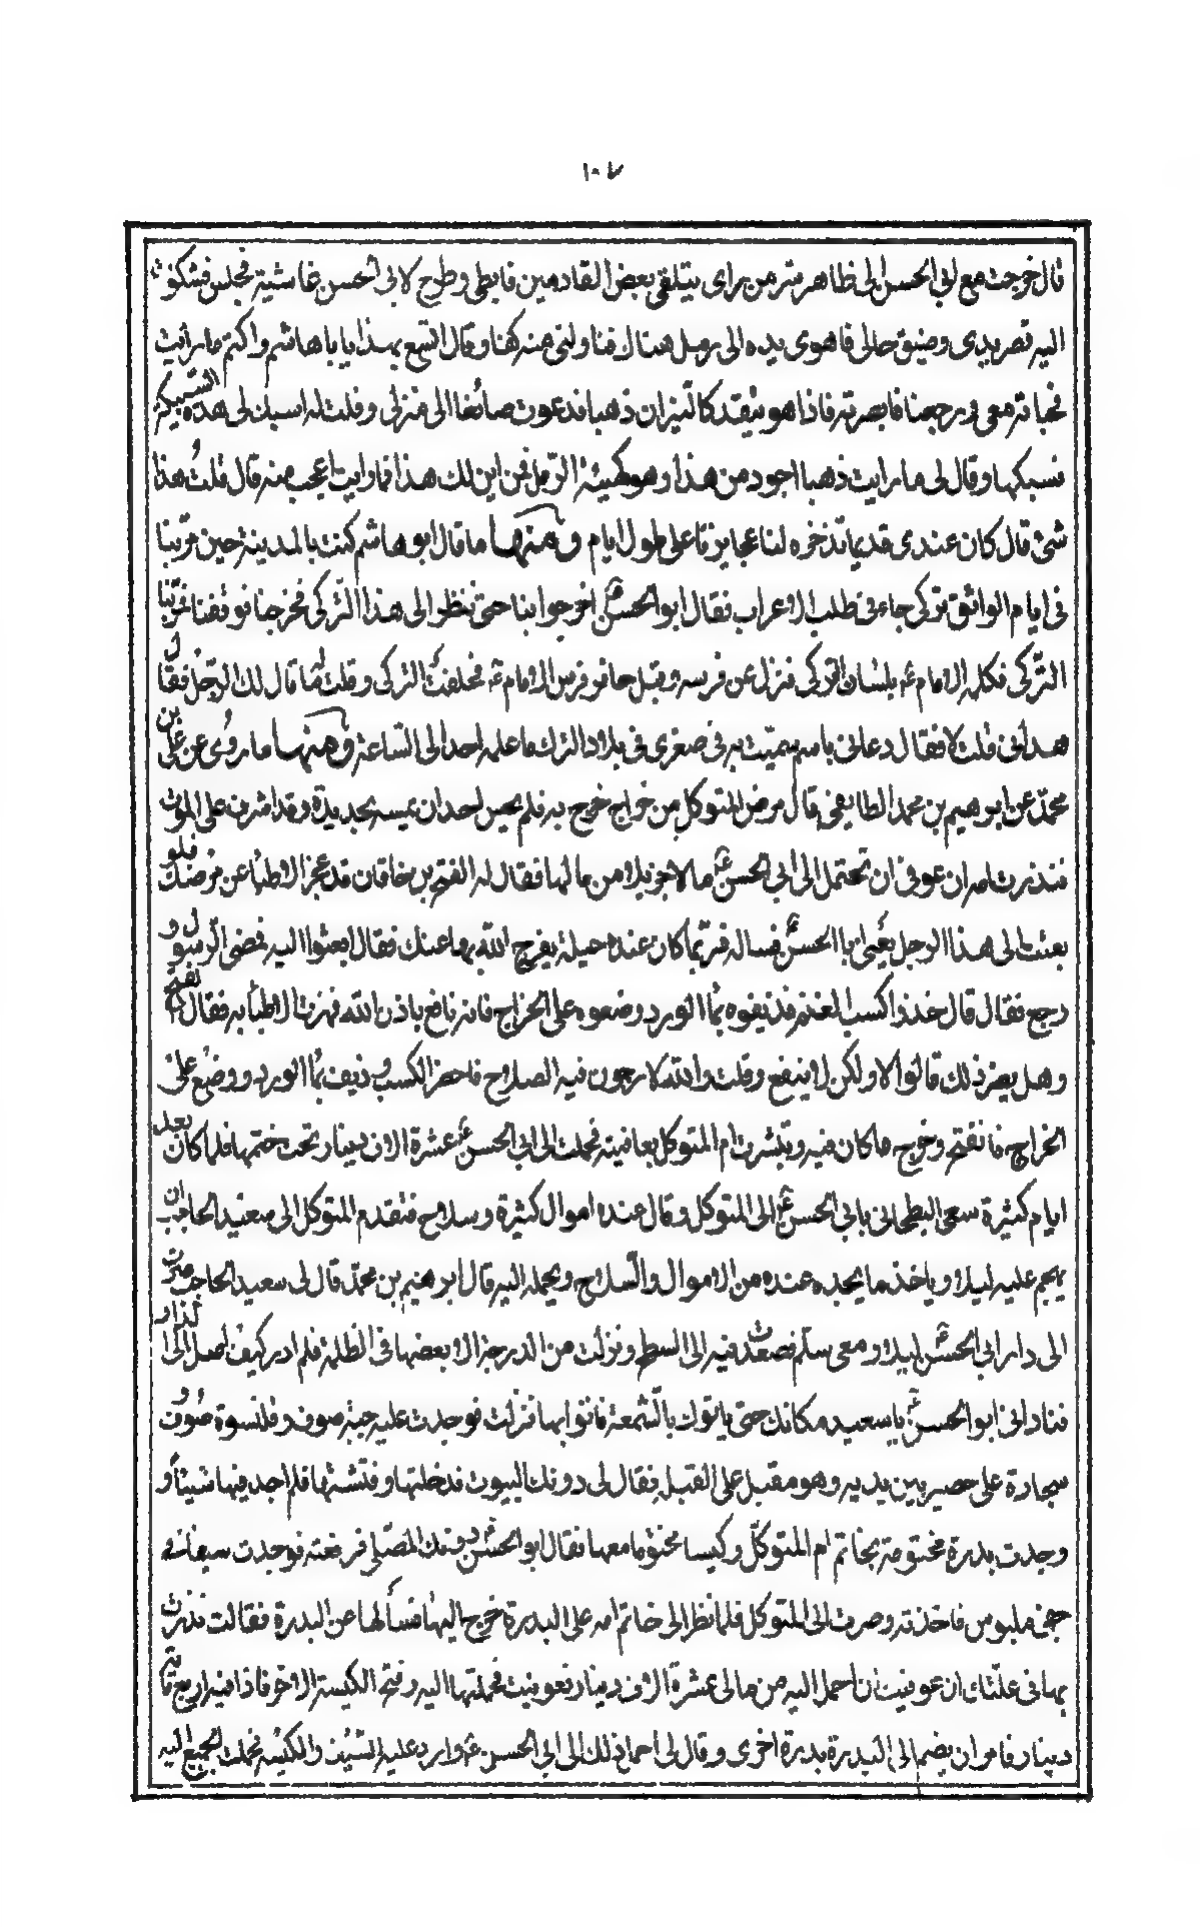 ١٠٧
قال خرجت مع ابي الحسن الى ظاهر سر من راى نتلقى بعض القادمين فابطى وطرح لابى الحسن غاشية فجلس فشكوت
اليه قصر يدى وضيق حالى فاهوى بيده الى رمل هناك فناولنى منه كفا وقال اتسع بهذا يا باهاشم واكتم ما رايت
فخباته معى ورجعنا فابصرته فاذا هو يتقد كالنيران ذهبا فدعوت صائغا الى منزلى وقلت له اسبك لى هذه السبيكة
فسبكها وقال لى ما رايت ذهبا اجود من هذا وهو كهيئة الرمل فمن اين لك هذا فما رايت اعجب منه قال قلت هذا
شئ قال كان عندى قديما تدخره لنا عجايزنا على طول الايام ومنها ما قال ابو هاشم كنت بالمدينة حين مر بنا
فى ايام الواثق تركى جاء فى طلب الاعراب فقال ابو الحسن ع اخرجوا بنا حتى ننظر الى هذا التركى فخرجنا فوقفنا فمر بنا
التركى فكلمه الامام ع بلسان التركى فنزل عن فرسه وقبل حافر فرس الامام ع فحلفت التركى وقلت ما قال لك الرجل فقال
هذا نبى قلت لا فقال دعانى باسم سميت به فى صغرى فى بلاد الترك ما علمه احد الى الساعة ومنها ما روى عن على بن
محمد عن ابرهيم بن محمد الطايفى قال مرض المتوكل من خراج خرج به فلم يحسن احد ان يمسه بحديدة وقد اشرف على الموت
فنذرت امه ان عوفى ان تحتمل الى ابي الحسن ع مالا جزيلا من مالها فقال له الفتح بن خاقان قد عجز الاطبا عن مرضك فلو
بعثت الى هذا الرجل يعنى ابا الحسن ع فساله فربما كان عنده حيلة يفرج الله بها عنك فقال ابعثوا اليه فمضى الرسول و
رجع فقال قال خذوا كسب الغنم فذيفوه بماء الورد وضعوه على الخراج فانه نافع باذن الله فهزت الاطباء به فقال لهم الفتح
وهل يضر ذلك قالوا لا ولكن لا ينفع وقلت والله لارجون فيه الصلاح فاحضر الكسب وذيف بماء الورد ووضع على
الخراج فانفتح وخرج ما كان فيه وتبشرت ام المتوكل بعافيته فحملت الى ابي الحسن ع عشرة الاف دينار تحت ختمها فلما كان بعد
ايام كثيرة سعى البطحانى بابي الحسن ع الى المتوكل وقال عنده اموال كثيرة وسلاح فتقدم المتوكل الى سعيد الحاجب ان
يهجم عليه ليلا وياخذ ما يجده عنده من الاموال والسلاح ويحمله اليه قال ابرهيم بن محمد قال لى سعيد الحاجب صرت
الى دار ابي الحسن ع ليلا ومعى سلم فصعدت فيه الى السطح ونزلت من الدرجة الا بعضها فى الظلمة فلم ادر كيف اصل الى الدار
فنادانى ابو الحسن ع يا سعيد مكانك حتى ياتوك بالشمعة فاتوا بها فنزلت فوجدت عليه جبة صوف وقلنسوة صوف و
سجادة على حصير بين يديه وهو مقبل على القبلة فقال لى دونك البيوت فدخلتها وفتشتها فلم اجد فيها شيئا و
وجدت بدرة مختومة بخاتم ام المتوكل وكيسا مختوما معها فقال ابو الحسن ع دونك المصلى فرفعته فوجدت سيفا فى
جفن ملبوس فاخذته وصرت الى المتوكل فلما نظر الى خاتم امه على البدرة خرج اليها فسألها عن البدرة فقالت نذرت
بها فى علتك ان عوفيت ان احمل اليه من مالى عشرة الاف دينار فعوفيت فحملتها اليه وفتح الكيسة الاخر فاذا فيه اربع مائة
دينار فامر ان يضم الى البدرة بدرة اخرى وقال لى احمل ذلك الى ابي الحسن ع واردد عليه السيف والكيسة فحملت الجميع اليه